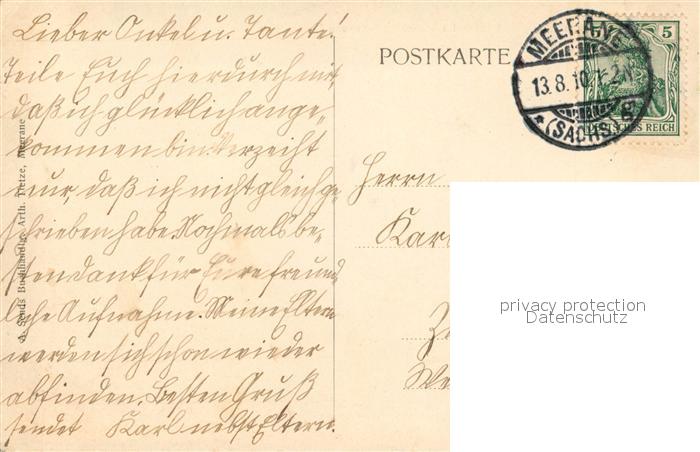 Lieber Onkel u. Tante!
Teile Euch hierdurch mit,
daß ich glücklich ange-
kommen bin. Verzeiht
nur, daß ich nicht gleich ge-
schrieben habe. Nochmals be-
sten Dank für Eure freund-
liche Aufnahme. Meine Eltern
werden sich schon wieder
abfinden. Besten Gruß
sendet Karl nebst Eltern.
Buchhandlg. Arth. Tietze, Meerane
POSTKARTE
MEERANE
13.8.10.
(SACHS.)
5
DEUTSCHES REICH
Herrn
Karl
privacy protection
Datenschutz